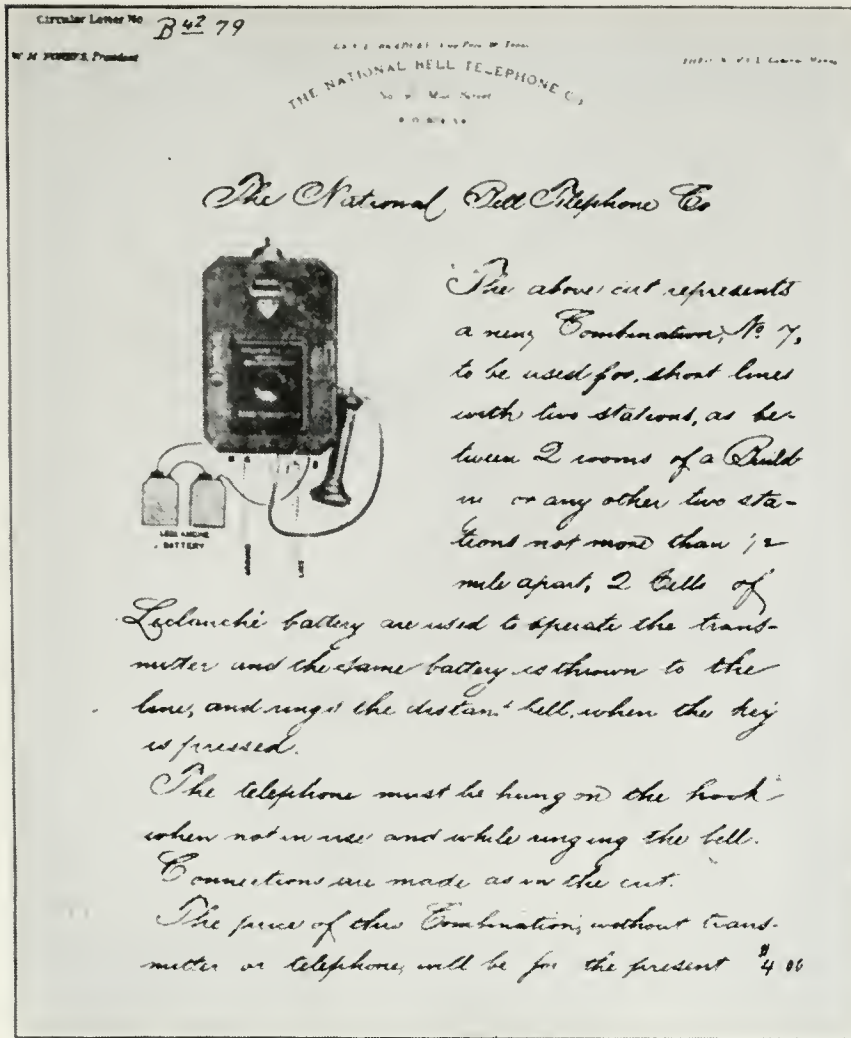 Circular Letter No B 42 79
W. H. FORBES, President
THE NATIONAL BELL TELEPHONE CO
BOSTON
The National Bell Telephone Co
LECLANCHE
BATTERY
GROUND
LINE
The above cut represents
a new Combination, No 7,
to be used for short lines
with two stations, as be-
tween 2 rooms of a Build
in or any other two sta-
tions not more than 1/2
mile apart, 2 Cells of
Leclanché battery are used to operate the trans-
mitter and the same battery is thrown to the
line, and rings the distant bell, when the key
is pressed.
The telephone must be hung on the hook
when not in use and while ringing the bell.
Connections are made as in the cut.
The price of this Combination, without trans-
mitter or telephone, will be for the present $4 00